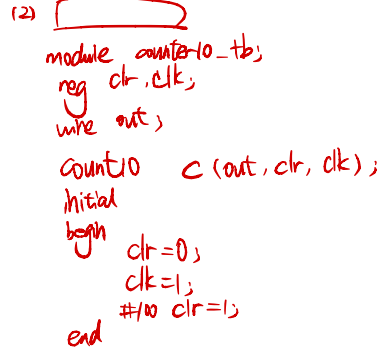 (2)
module counter10_tb;
reg clr,clk;
wire out;
count10 c(out,clr,clk);
initial
begin
clr=0;
clk=1;
#100 clr=1;
end